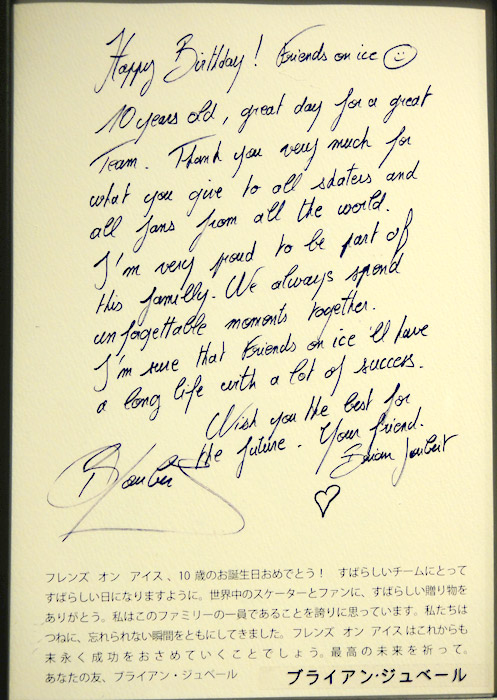 Happy Birthday! Friends on ice ☺
10 years old, great day for a great
Team. Thank you very much for
what you give to all skaters and
all fans from all the world.
I'm very proud to be part of
this familly. We always spend
unforgettable moments together.
I'm sure that Friends on ice 'll have
a long life with a lot of success.
Wish you the best for
the future. Your friend.
Brian Joubert
B Joubert
♡
フレンズ オン アイス、10 歳のお誕生日おめでとう! すばらしいチームにとって
すばらしい日になりますように。世界中のスケーターとファンに、すばらしい贈り物を
ありがとう。私はこのファミリーの一員であることを誇りに思っています。私たちは
つねに、忘れられない瞬間をともにしてきました。フレンズ オン アイスはこれからも
末永く成功をおさめていくことでしょう。最高の未来を祈って。
あなたの友、ブライアン・ジュベール
ブライアン・ジュベール